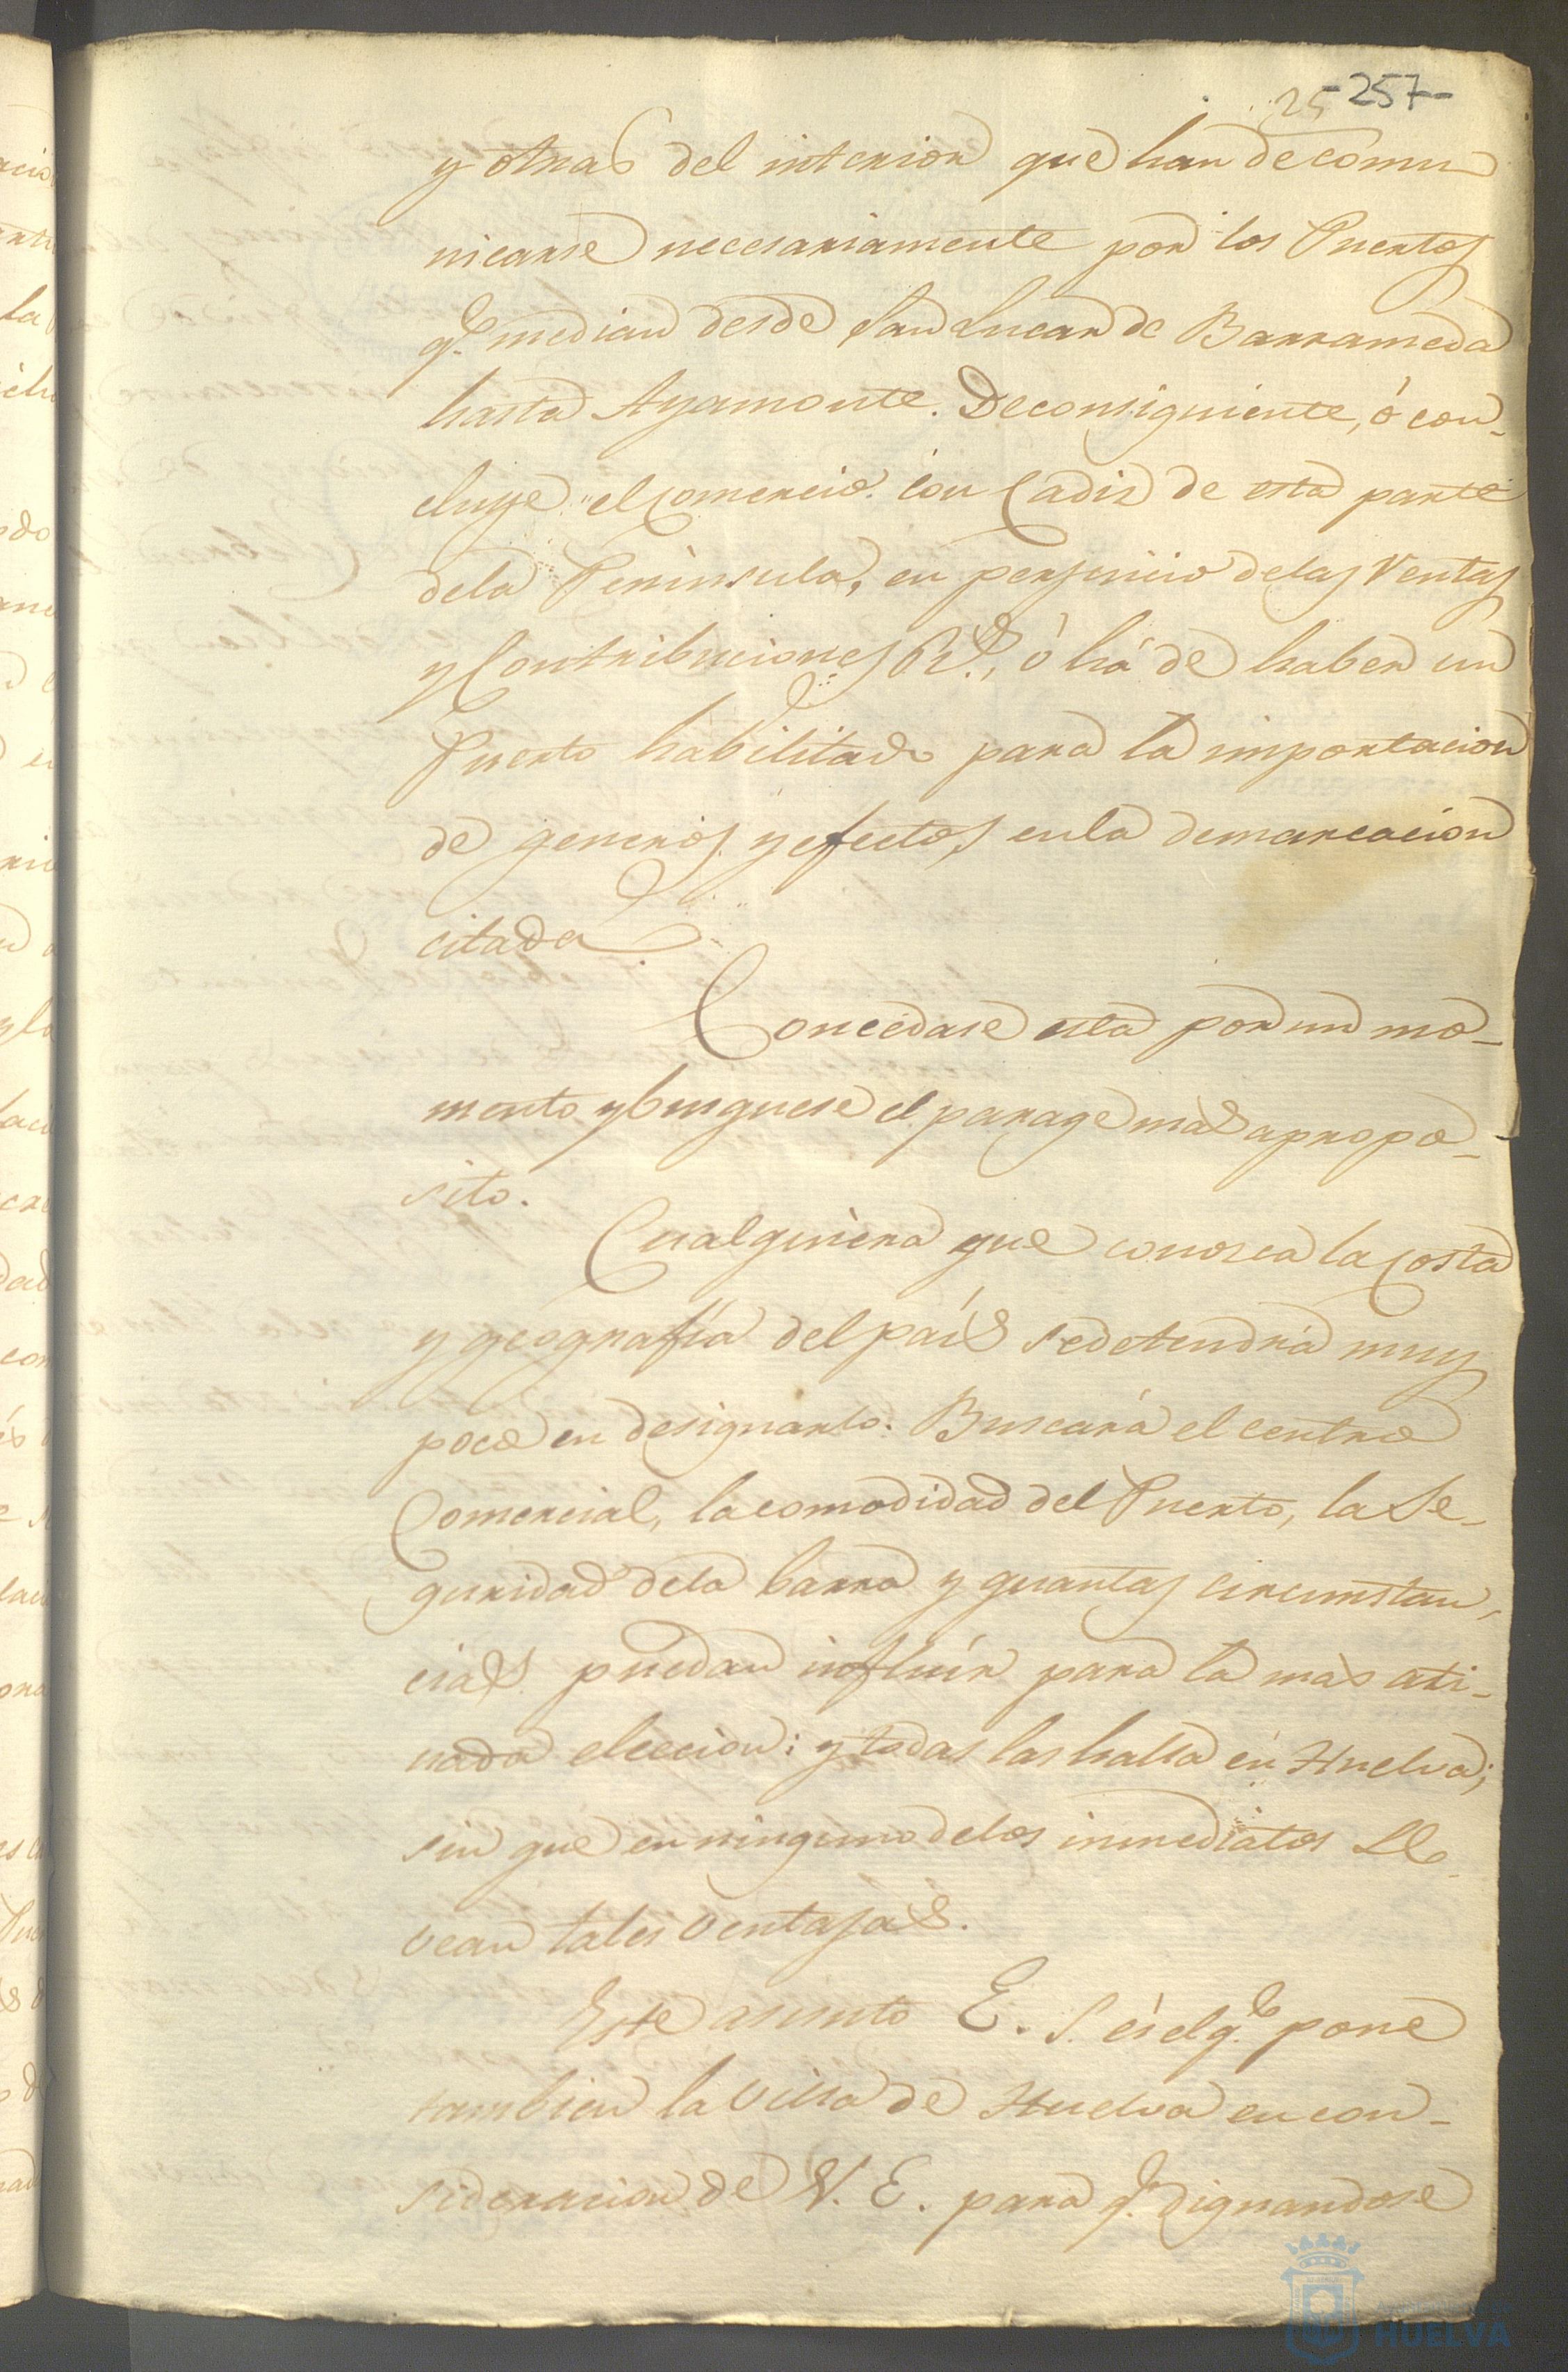 25 -257-
y otras del interior que han de comu
nicarse necesariamente por los Puertos
q.e median desde San Lucar de Barrameda
hasta Ayamonte. De consiguiente, ó con-
cluye el Comercio con Cadiz de esta parte
dela Peninsula, en perjuicio delas Ventas
y Contribuciones R.s, ó há de haber un
Puerto habilitado para la importacion
de generos y efectos, enla demarcacion
citada.
Concedase esta por un mo-
mento y busquese el parage mas apropo-
sito.
Cualquiera que conosca la Costa
y geografía del país sedetendrá muy
poco en designarlo. Buscará el centro
Comercial, lacomodidad del Puerto, la Se-
guridad dela barra y quantas circunstan-
cias puedan influír para la mas ati-
nada eleccion; y todas las halla en Huelva;
sin que en ninguno delos inmediatos se
vean tales ventajas.
Este asunto E. S. es el q.e pone
tambien la Villa de Huelva en con-
sideracion de V. E. para q.e dignandose
HUELVA